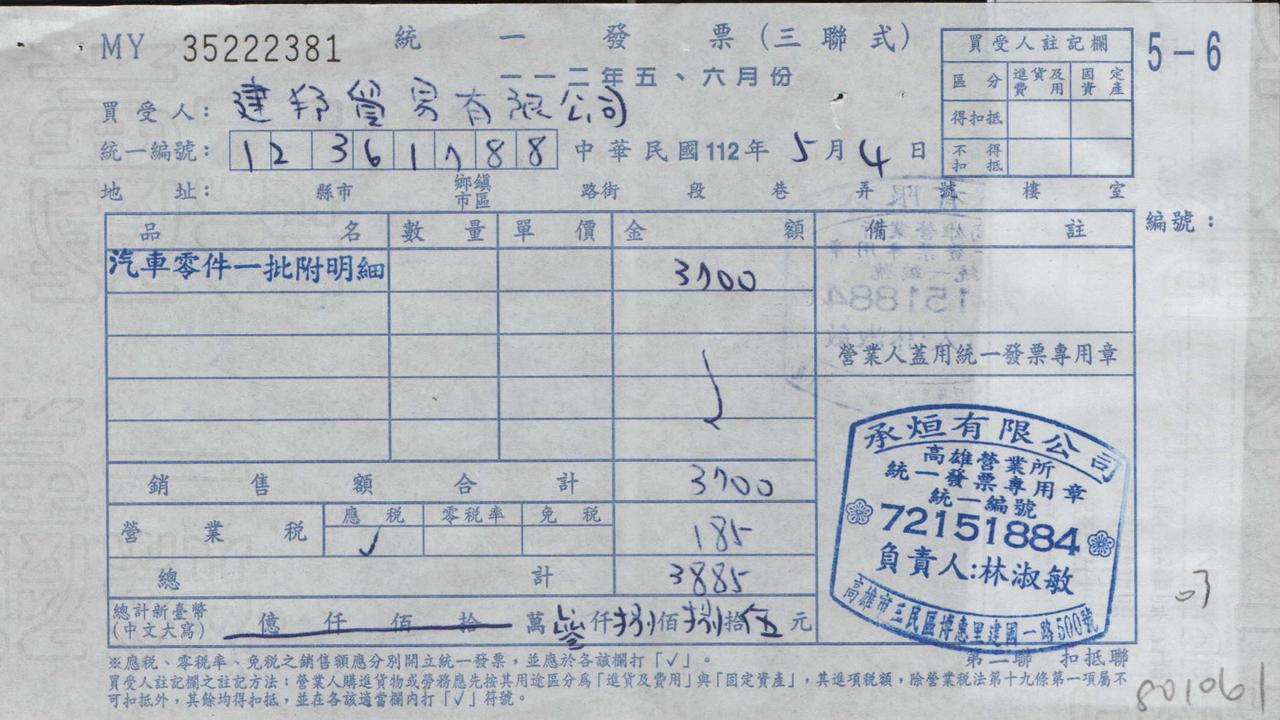 MY 35222381 統一發票(三聯式)
一一二年五、六月份
5-6
買受人註記欄
區分 進貨及費用 固定資產
得扣抵
不得扣抵
買受人: 建邦貿易有限公司
統一編號: 12361788 中華民國112年5月4日
地址: 縣市 鄉鎮市區 路街 段 巷 弄 號 樓 室
品名 數量 單價 金額 備註 編號:
汽車零件一批附明細 3700
營業人蓋用統一發票專用章
銷售額合計 3700
營業稅 應稅 零稅率 免稅
✓ 185
總計 3885
總計新臺幣(中文大寫) 億仟佰拾萬參仟捌佰捌拾伍元
承烜有限公司
高雄營業所
統一發票專用章
統一編號
72151884
負責人:林淑敏
高雄市三民區博惠里建國一路500號
03
第二聯 扣抵聯
※應稅、零稅率、免稅之銷售額應分別開立統一發票,並應於各該欄打「✓」。
買受人註記欄之註記方法:營業人購進貨物或勞務應先按其用途區分為「進貨及費用」與「固定資產」,其進項稅額,除營業稅法第十九條第一項屬不
可扣抵外,其餘均得扣抵,並在各該適當欄內打「✓」符號。
801061